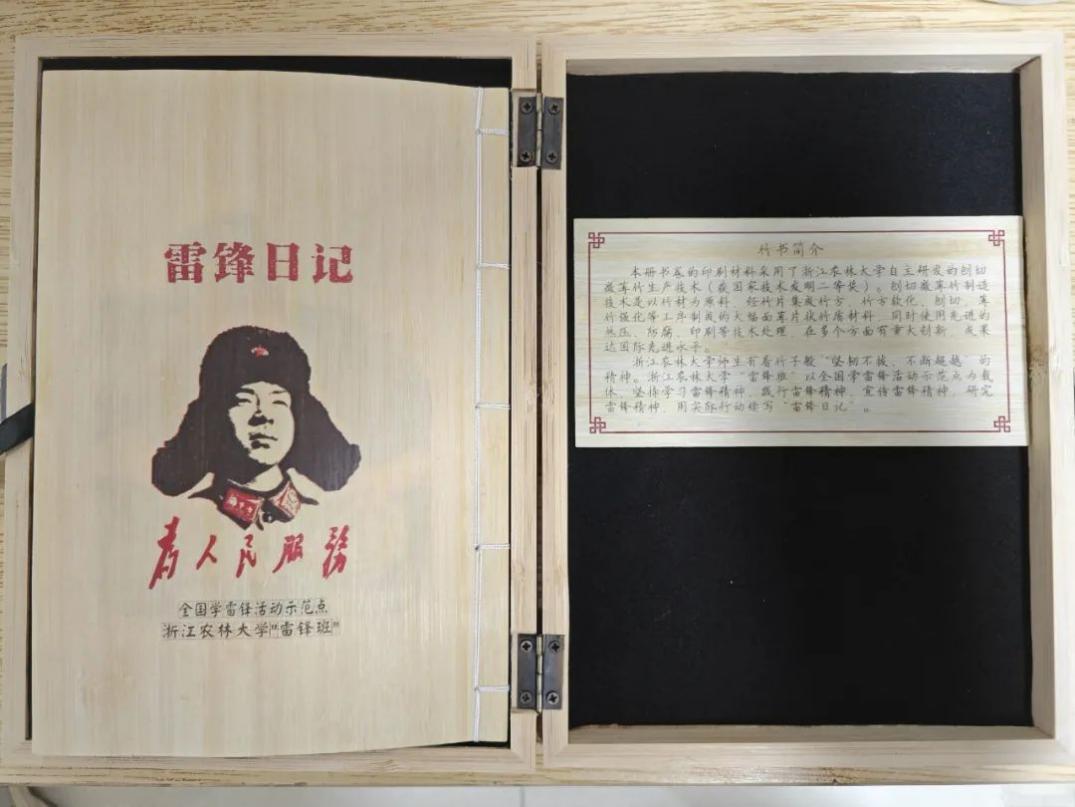 雷锋日记
为人民服務
全国学雷锋活动示范点
浙江农林大学“雷锋班”
竹书简介
本册书卷的印刷材料采用了浙江农林大学自主研发的刨切
微薄竹生产技术（获国家技术发明二等奖）。刨切微薄竹制造
技术是以竹材为原料，经竹片集成竹方、竹方软化、刨切、薄
竹强化等工序制成的大幅面薄片状竹质材料，同时使用先进的
热压、防腐、印刷等技术处理，在多个方面有重大创新，成果
达国际先进水平。
浙江农林大学师生有着竹子般“坚韧不拔、不断超越”的
精神。浙江农林大学“雷锋班”以全国学雷锋活动示范点为载
体，坚持学习雷锋精神，践行雷锋精神，宣传雷锋精神，研究
雷锋精神，用实际行动续写“雷锋日记”。